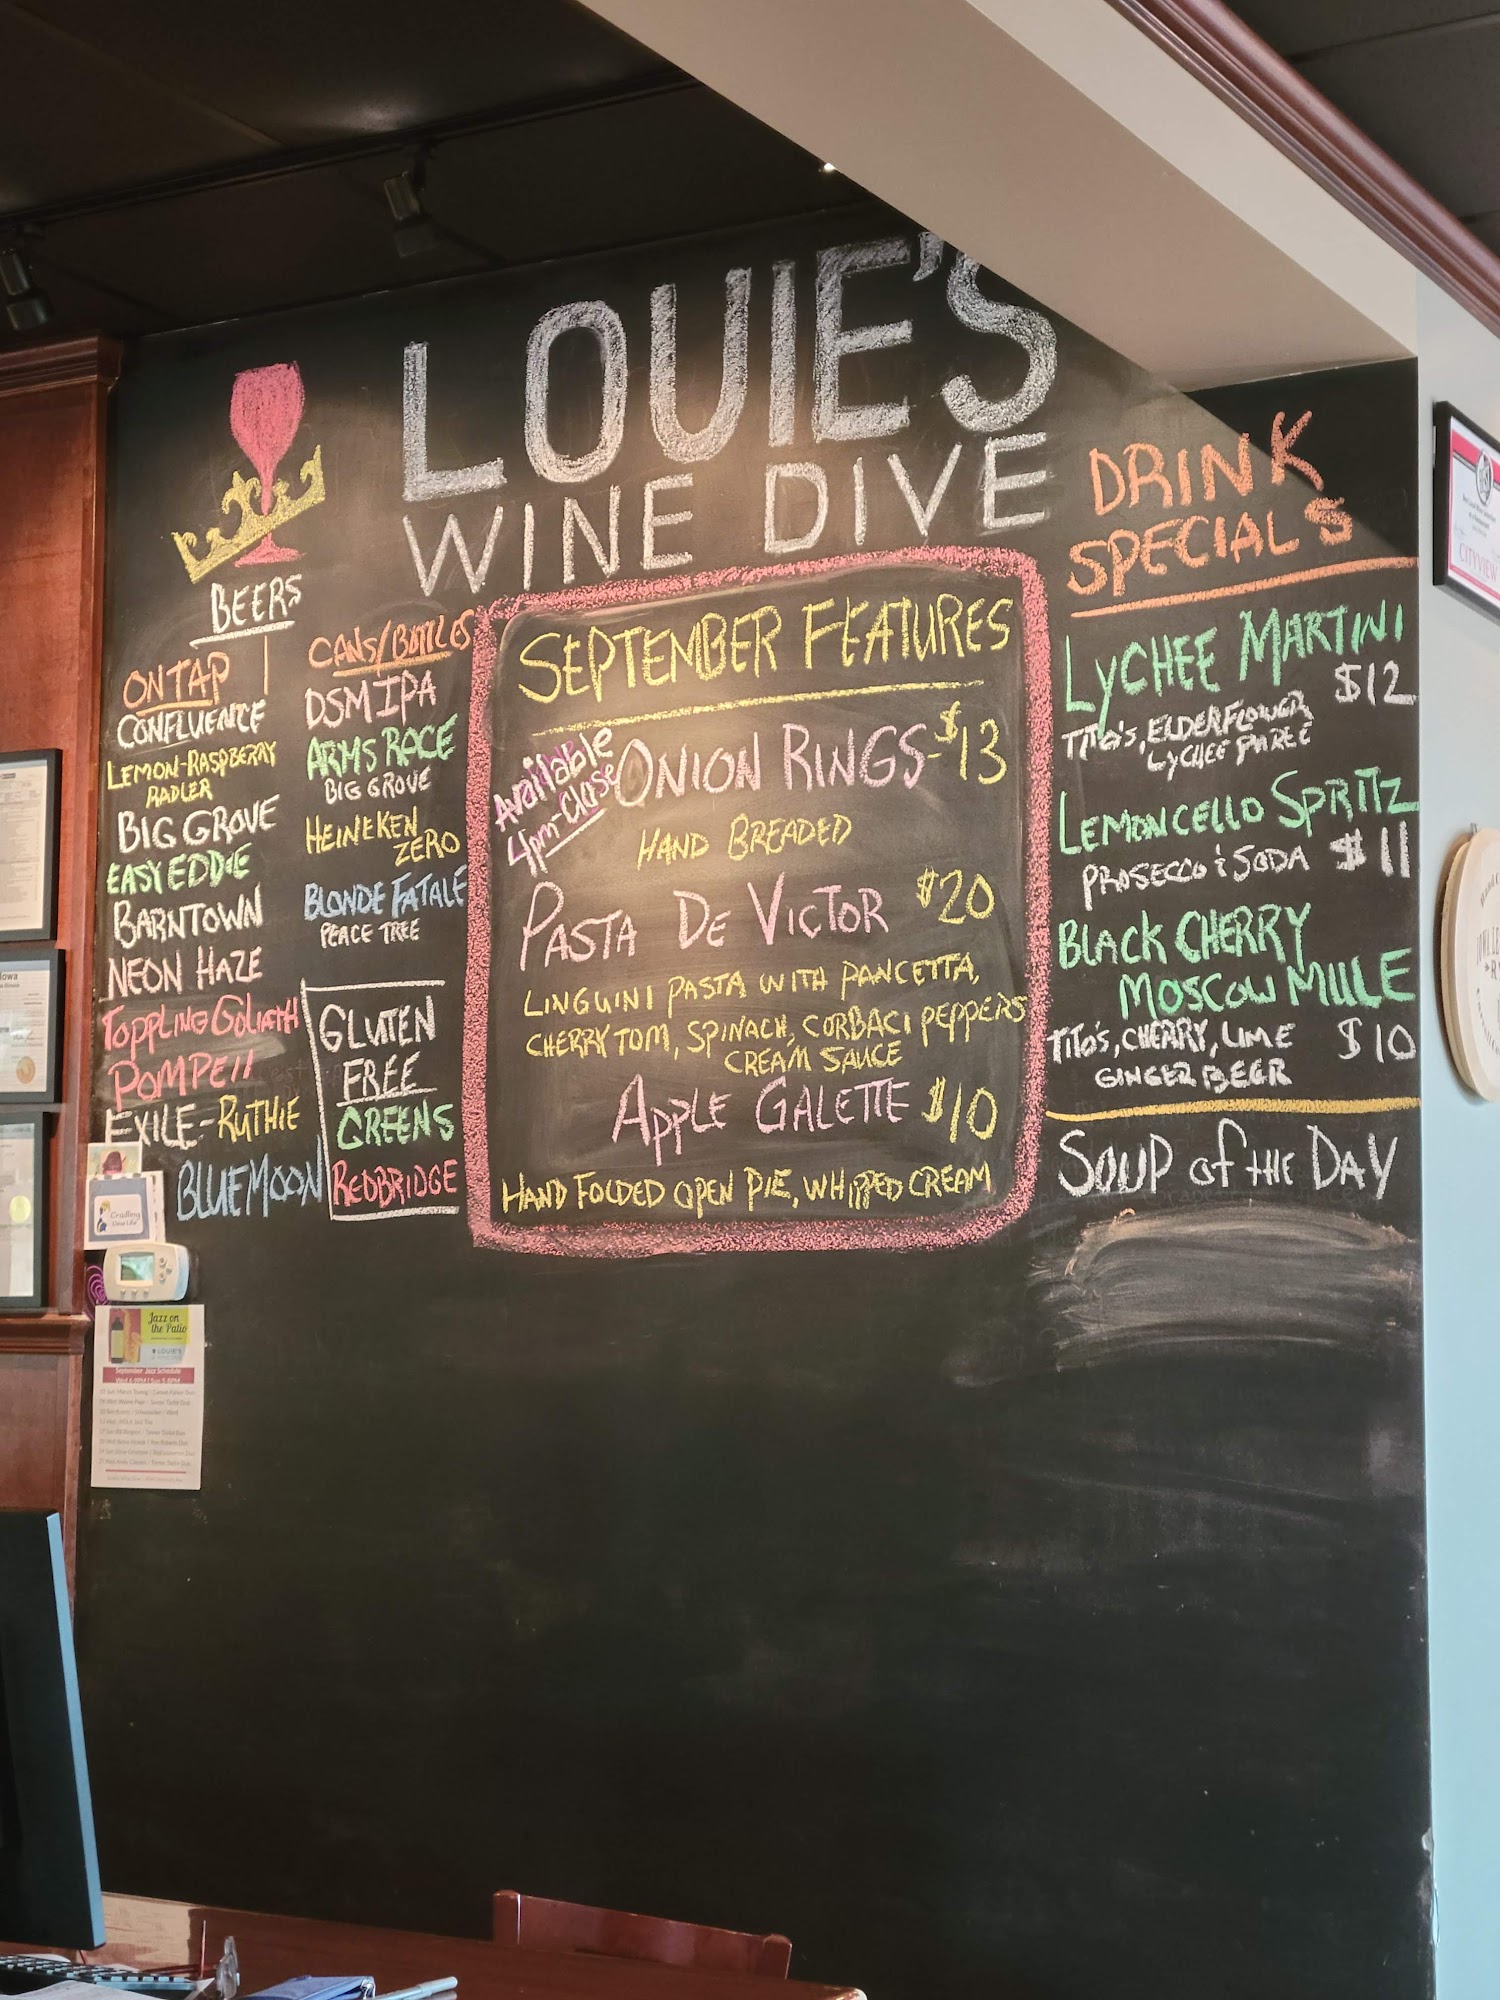 LOUIE'S
WINE DIVE
BEERS
ON TAP
CONFLUENCE
LEMON-RASPBERRY
RADLER
BIG GROVE
EASY EDDIE
BARNTOWN
NEON HAZE
TOPPLING GOLIATH
POMPEII
EXILE - RUTHIE
BLUE MOON
CANS/BOTTLES
DSM IPA
ARMS RACE
BIG GROVE
HEINEKEN
ZERO
BLONDE FATALE
PEACE TREE
GLUTEN
FREE
GREENS
REDBRIDGE
SEPTEMBER FEATURES
Available
4pm-Close
ONION RINGS - $13
HAND BREADED
PASTA DE VICTOR $20
LINGUINI PASTA WITH PANCETTA,
CHERRY TOM, SPINACH, CORBACI PEPPERS
CREAM SAUCE
APPLE GALETTE $10
HAND FOLDED OPEN PIE, WHIPPED CREAM
DRINK
SPECIALS
LYCHEE MARTINI
$12
TITO'S, ELDERFLOWER,
LYCHEE PUREE
LEMONCELLO SPRITZ
PROSECCO & SODA $11
BLACK CHERRY
MOSCOW MULE
TITO'S, CHERRY, LIME $10
GINGER BEER
SOUP of THE DAY
Jazz on
the Patio
LOUIE'S
September Jazz Schedule
Cradling
New Life
CITYVIEW